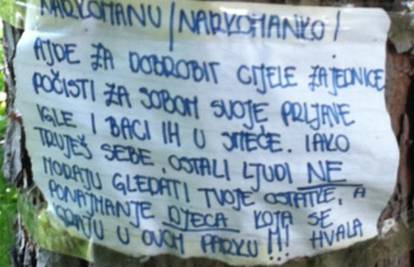 NARKOMANU/NARKOMANKO!
AJDE ZA DOBROBIT CIJELE ZAJEDNICE
POČISTI ZA SOBOM SVOJE PRLJAVE
IGLE I BACI IH U SMEĆE. IAKO
TRUJEŠ SEBE, OSTALI LJUDI NE
MORAJU GLEDATI TVOJE OSTATKE, A
PONAJMANJE DJECA KOJA SE
IGRAJU U OVOM PARKU!!! HVALA